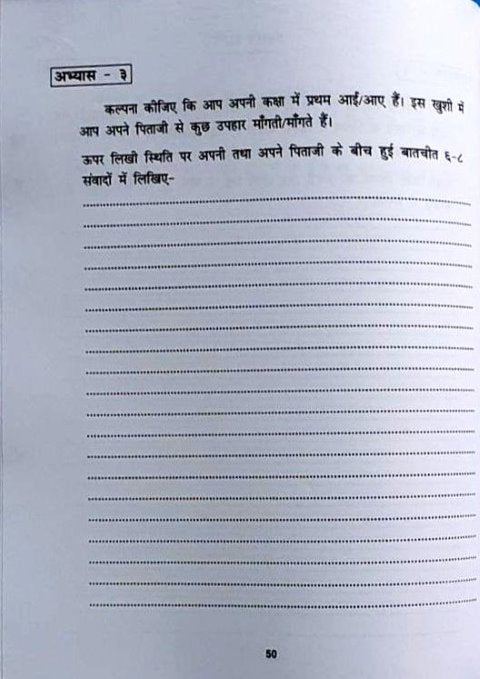 अभ्यास - ३
कल्पना कीजिए कि आप अपनी कक्षा में प्रथम आई/आए हैं। इस खुशी में
आप अपने पिताजी से कुछ उपहार माँगती/माँगते हैं।
ऊपर लिखी स्थिति पर अपनी तथा अपने पिताजी के बीच हुई बातचीत ६-८
संवादों में लिखिए-
50